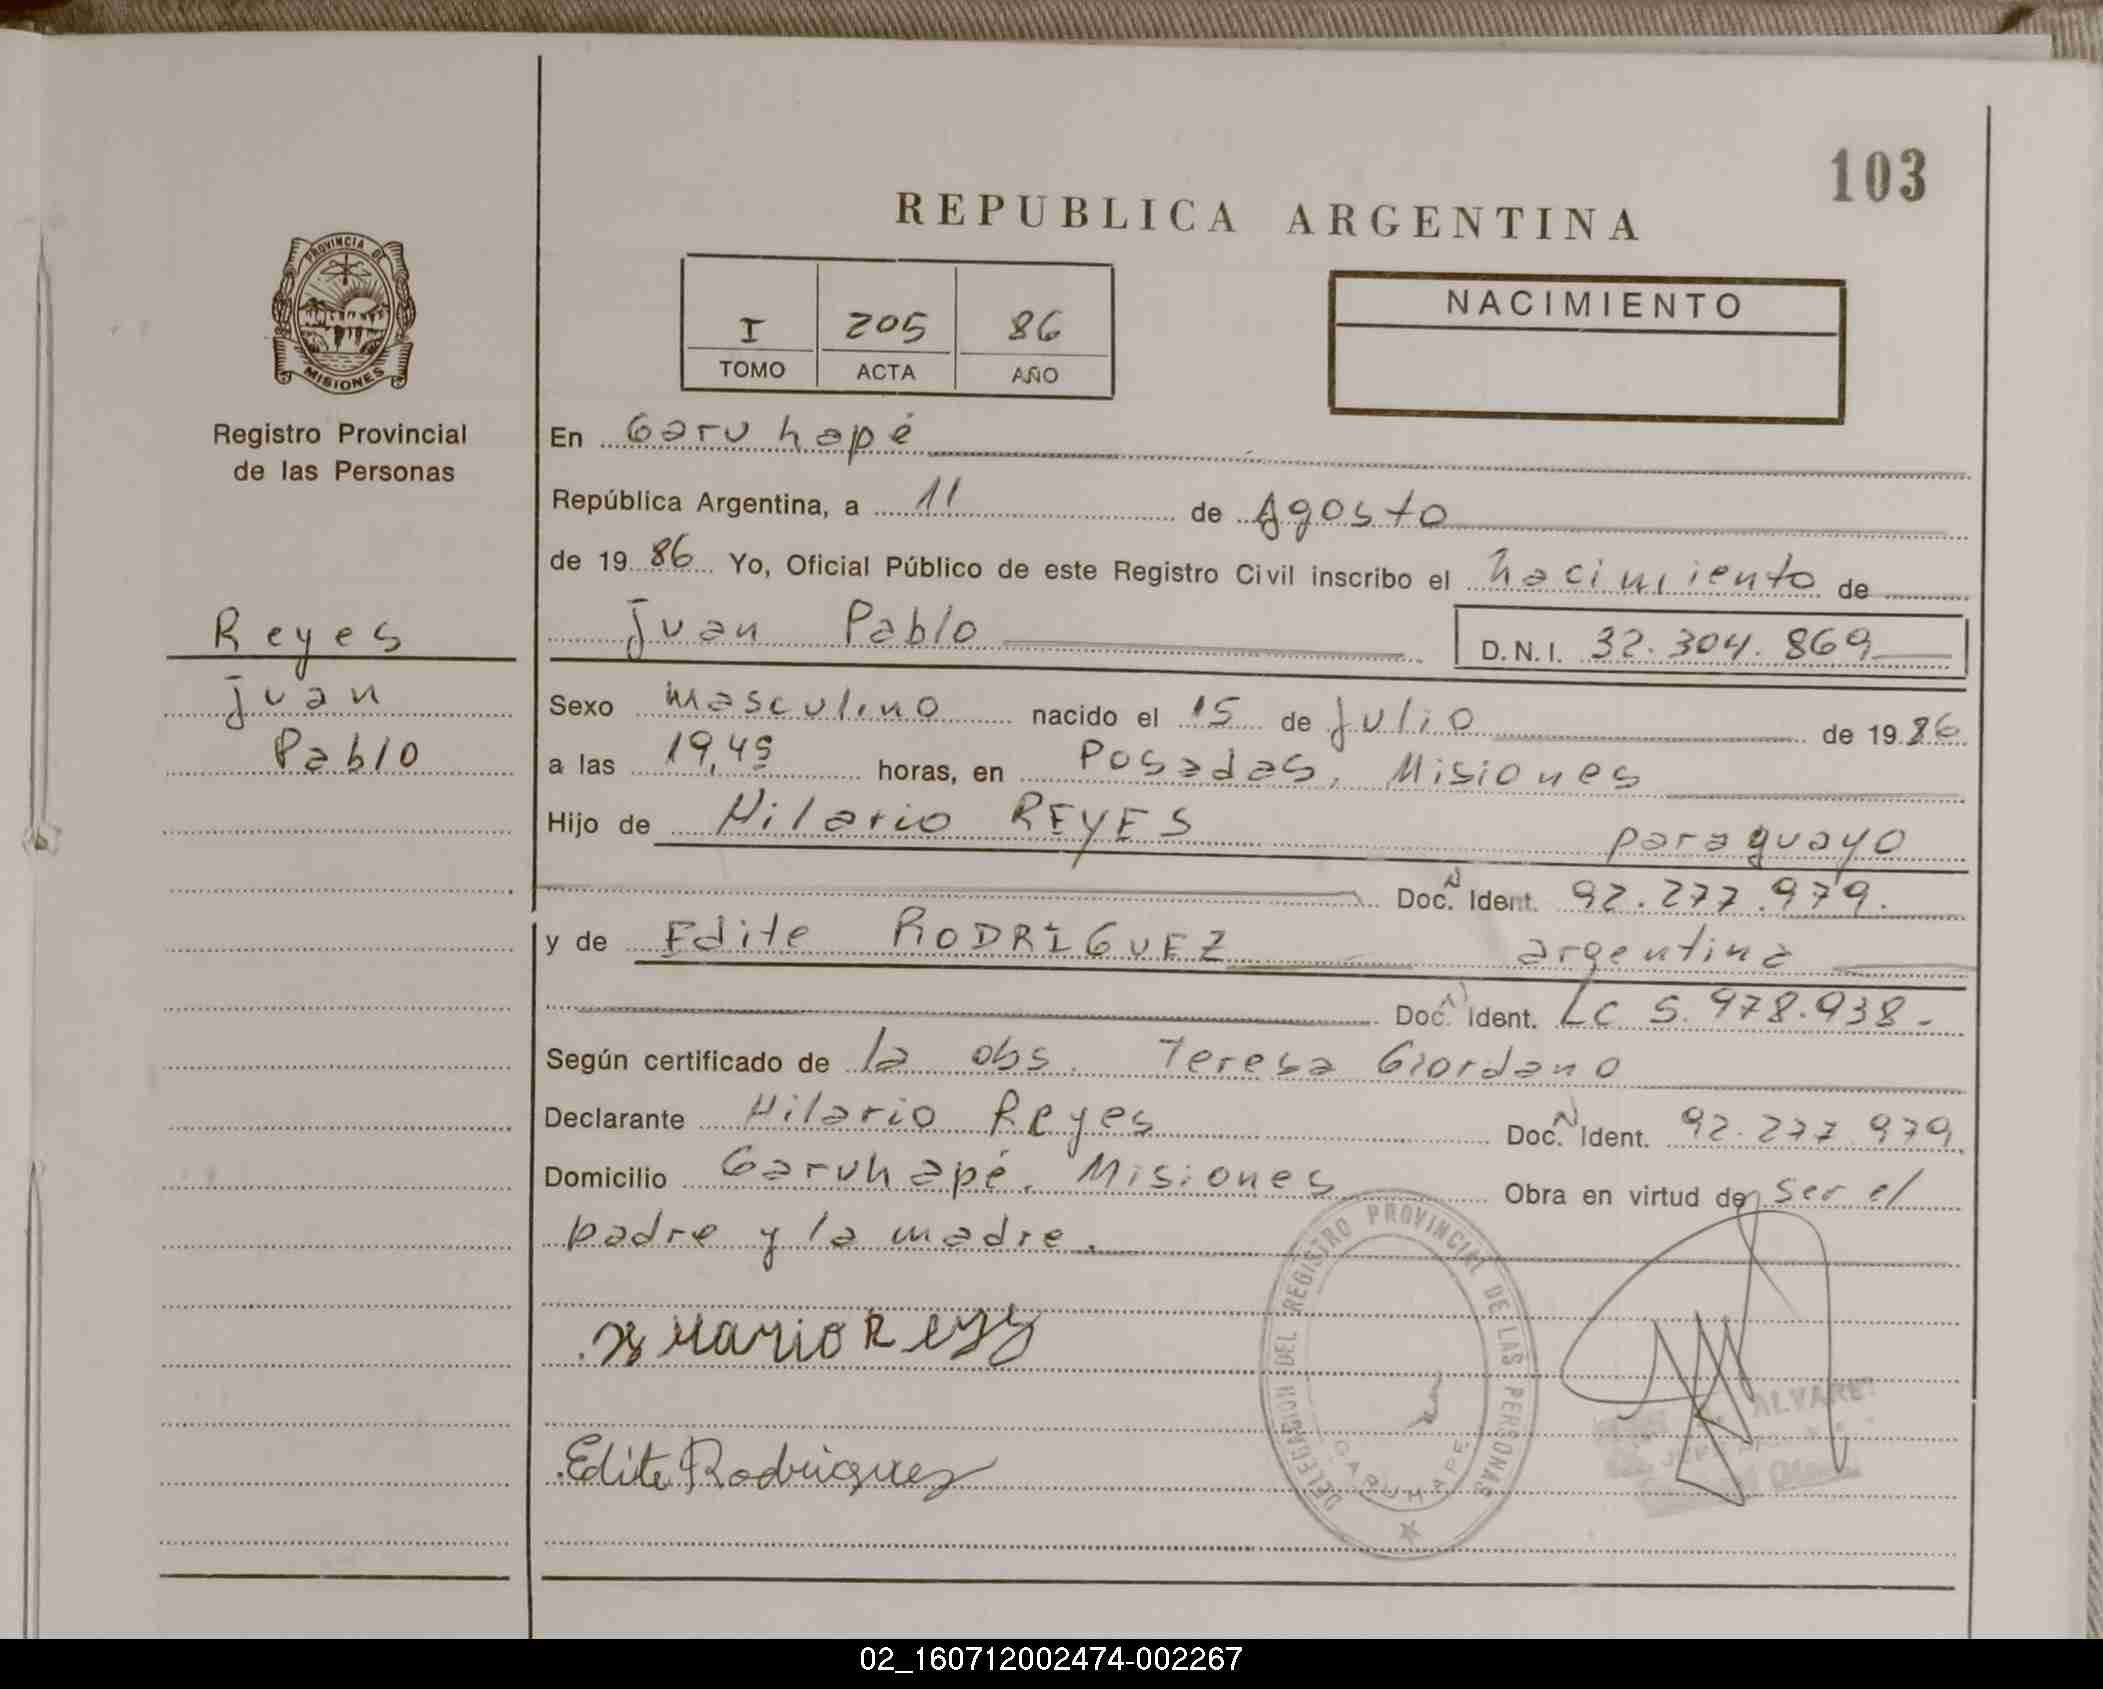 103
REPUBLICA ARGENTINA
PROVINCIA DE
MISIONES
Registro Provincial
de las Personas
I 205 86
TOMO ACTA AÑO
NACIMIENTO
En Garuhapé
República Argentina, a 11 de Agosto
de 19 86 Yo, Oficial Público de este Registro Civil inscribo el nacimiento de
Juan Pablo D.N.I. 32.304.869
Reyes
Juan
Pablo
Sexo masculino nacido el 15 de Julio de 19 86
a las 19,45 horas, en Posadas, Misiones
Hijo de Hilario REYES paraguayo
Doc. N Ident. 92.277.979.
y de Edite RODRIGUEZ argentina
Doc. N Ident. LC 5.978.938-
Según certificado de la obs. Teresa Giordano
Declarante Hilario Reyes Doc. N Ident. 92.277.979
Domicilio Garuhapé, Misiones Obra en virtud de ser el
padre y la madre.
Reyes
Edite Rodriguez
DELEGACION DEL REGISTRO PROVINCIAL DE LAS PERSONAS
GARUHAPE
ALVAREZ
02_160712002474-002267